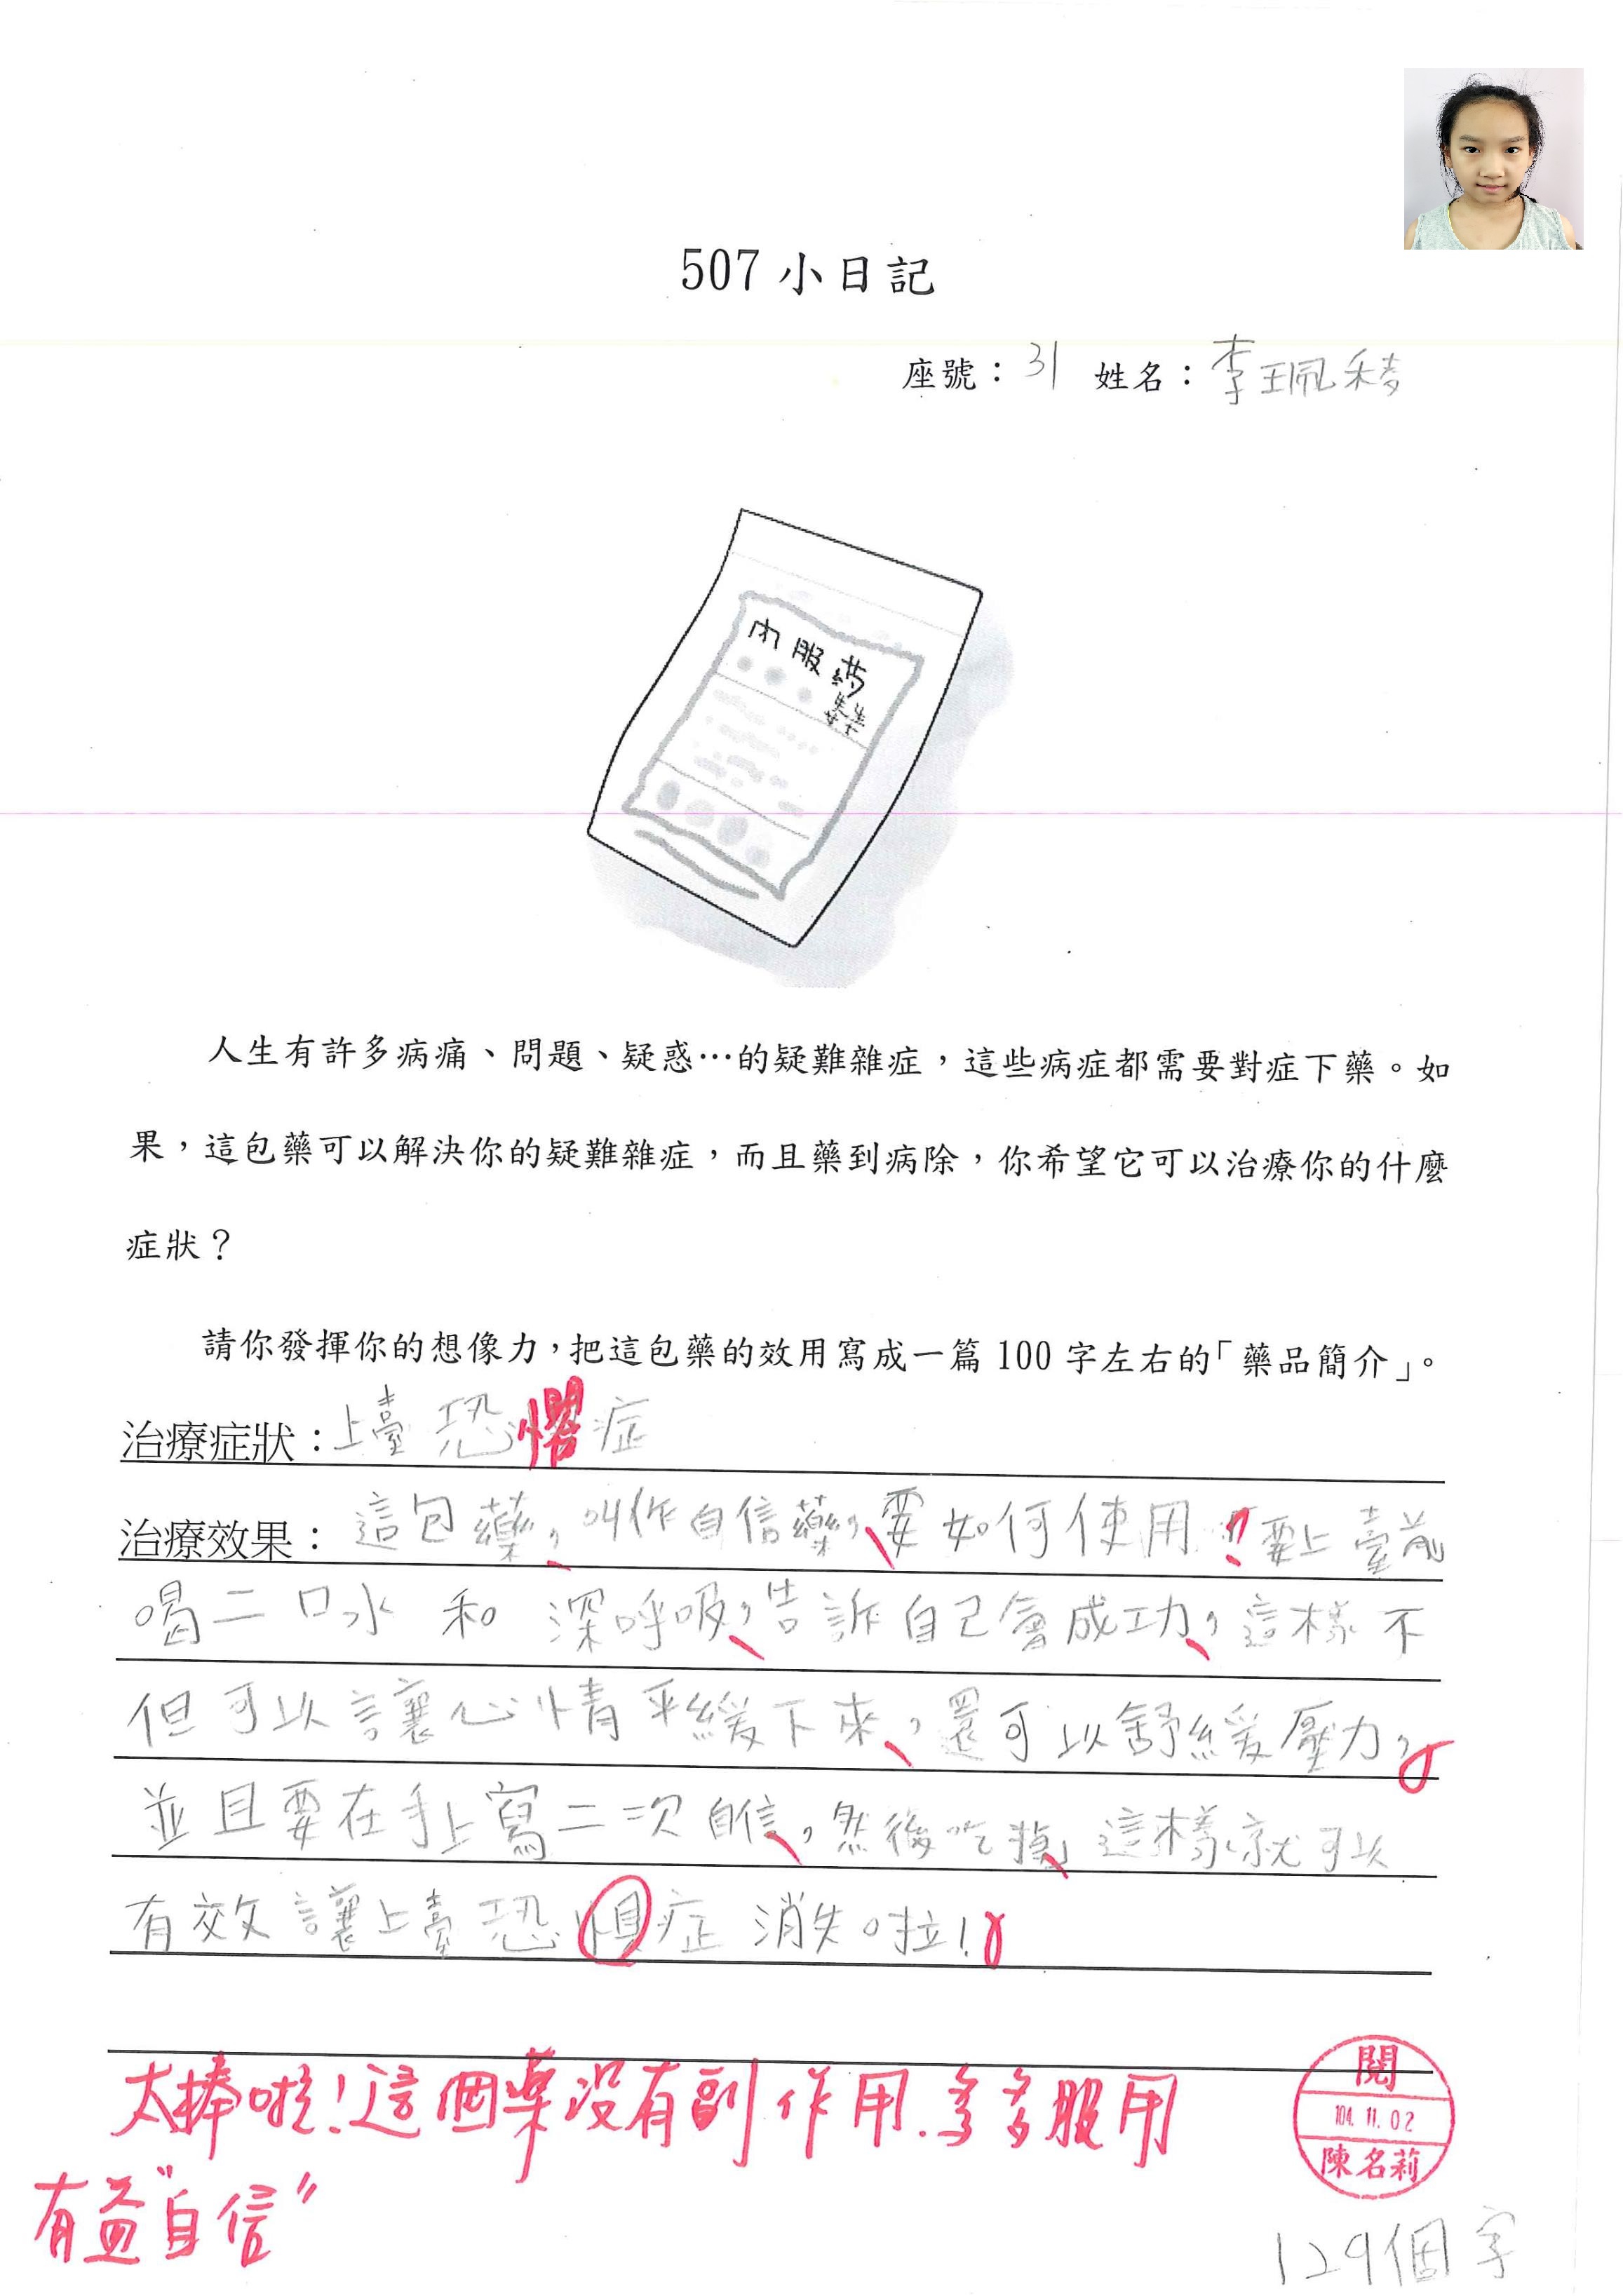 507 小日記
座號：31 姓名：李珮
內服藥
人生有許多病痛、問題、疑惑…的疑難雜症，這些病症都需要對症下藥。如
果，這包藥可以解決你的疑難雜症，而且藥到病除，你希望它可以治療你的什麼
症狀？
請你發揮你的想像力，把這包藥的效用寫成一篇 100 字左右的「藥品簡介」。
治療症狀：上臺恐懼症
治療效果：這包藥，叫作自信藥，要如何使用？要上臺前
喝二口水和深呼吸，告訴自己會成功，這樣不
但可以讓心情平緩下來，還可以舒緩壓力，
並且要在手上寫二次自信，然後吃掉，這樣就可以
有效讓上臺恐症消失啦！
太棒啦！這個藥沒有副作用.多多服用
有益"自信"
閱
104.11.02
陳名莉
129個字